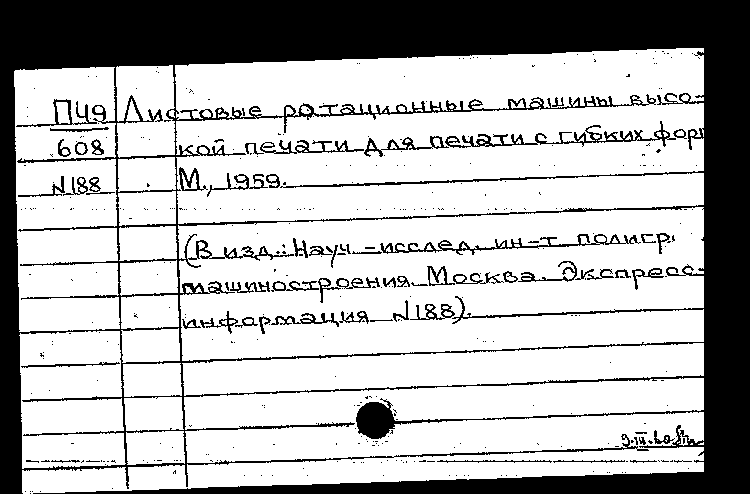 П49 Листовые ротационные машины высо-
608 кой печати для печати с гибких форм
N188 М., 1959.
(В изд.: Науч.-исслед. ин-т полигр.
машиностроения. Москва. Экспресс-
информация N188).